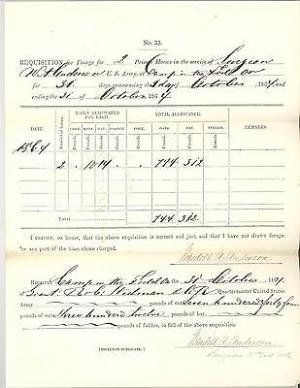 No. 33.
REQUISITION for Forage for 2 Horses in the service of Surgeon
U. S. Army, at Camp in the Field
for 31 days commencing the of October, 1864
and ending the 31 of October 1864
DAILY ALLOWANCE FOR EACH. TOTAL ALLOWANCE.
DATE. Number of horses. CORN. OATS. HAY. FODDER. CORN. OATS. HAY. FODDER. REMARKS
1864
2 10 14 744 312
TOTAL 744 312
I CERTIFY, on honor, that the above requisition is correct and just, and that I have not drawn forage
for any part of the time above charged.
Anderson
RECEIVED, Camp in the Field 31 October 1864,
of Quartermaster United States
Army, pounds of corn, seven hundred forty four
pounds of oats, Three hundred twelve pounds of hay,
pounds of fodder, in full of the above requisition.
Anderson
Surgeon
[SIGNED IN DUPLICATE.]